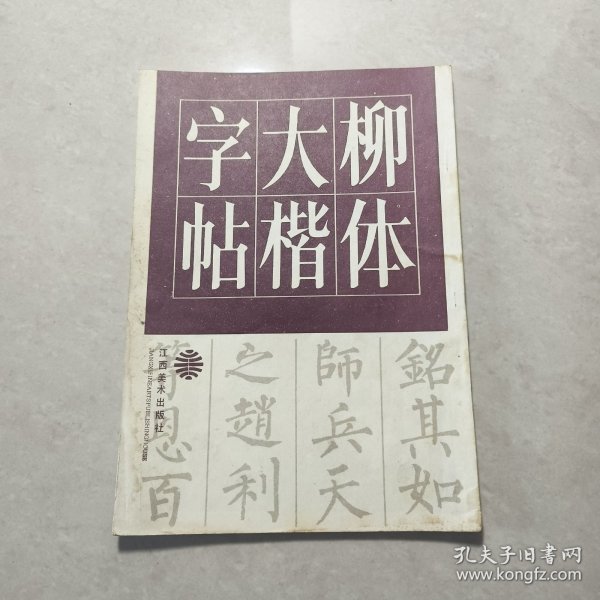 柳体
大楷
字帖
銘其如
師兵天
之趙利
等恩百
江西美术出版社
JIANGXI FINE ARTS PUBLISHING HOUSE
孔夫子旧书网
www.kongfz.com